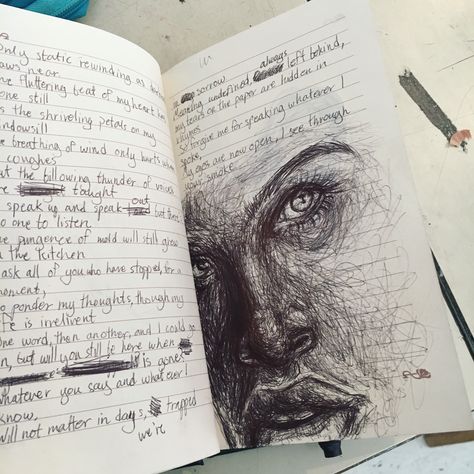 Only static rewinding as dawn
draws near
fluttering beat of my heart has
one still
As the shriveling petals on my
windowsill
breathing of wind only hurts when
coughes
But the billowing thunder of voices
taught
speak up and speak out but there
no one to listen
The pungence of mold will still grow
in the kitchen
I ask all of you who have stopped, for a
moment,
to ponder my thoughts, though my
life is irrelivent
One word, then another, and I could go
on, but will you still be here when
is agnes
Whatever you say and whatever I
know,
Will not matter in days, trapped
we're
sorrow always left behind,
Meaning undefined,
my tears on the paper are hidden in
rhymes
So forgive me for speaking whatever I
spoke,
My eyes are now open, I see through
your smoke